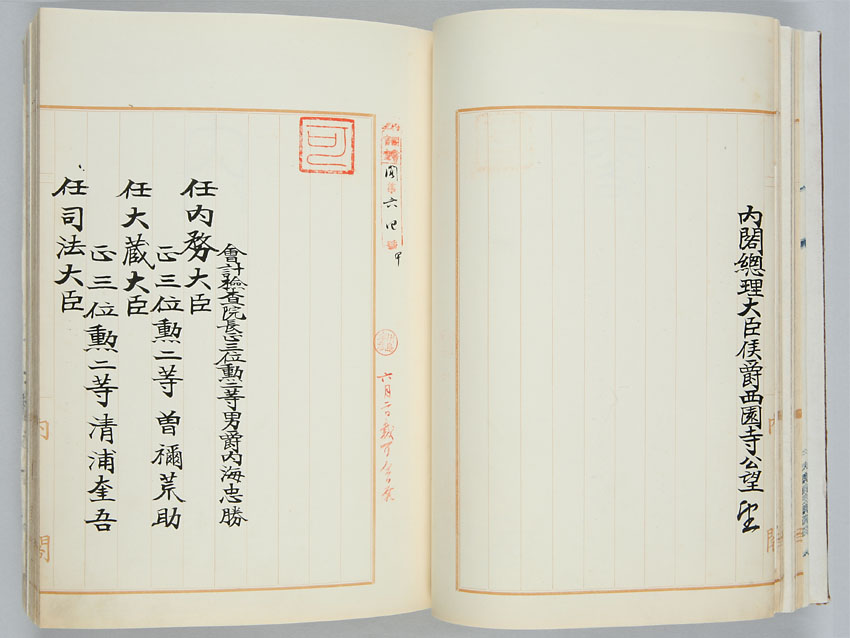 内閣總理大臣侯爵西園寺公望
可
六月二日裁可
會計檢査院長正三位勲二等男爵内海忠勝
任内務大臣
正三位勲二等曽禰荒助
任大蔵大臣
正三位勲二等清浦奎吾
任司法大臣
内閣